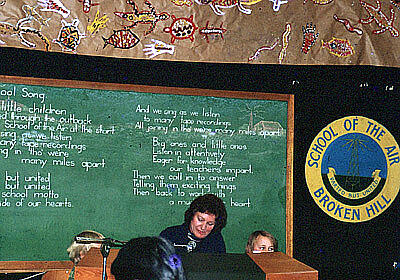 ool Song.
little children
d through the outback
School of the Air at the start
sing as we listen
many tape recordings
ng in tho we're
many miles apart.
but united
but united
school motto
side of our hearts.
And we sing as we listen
to many tape recordings
All jenny in tho we're many miles apart.
Big ones and little ones
Listen in attentively
Eager for knowledge
our teachers impart.
Then we call in to answer
Telling them exciting things
Then back to work with
a mus heart
SCHOOL OF THE AIR
UNITED BUT
BROKEN HILL